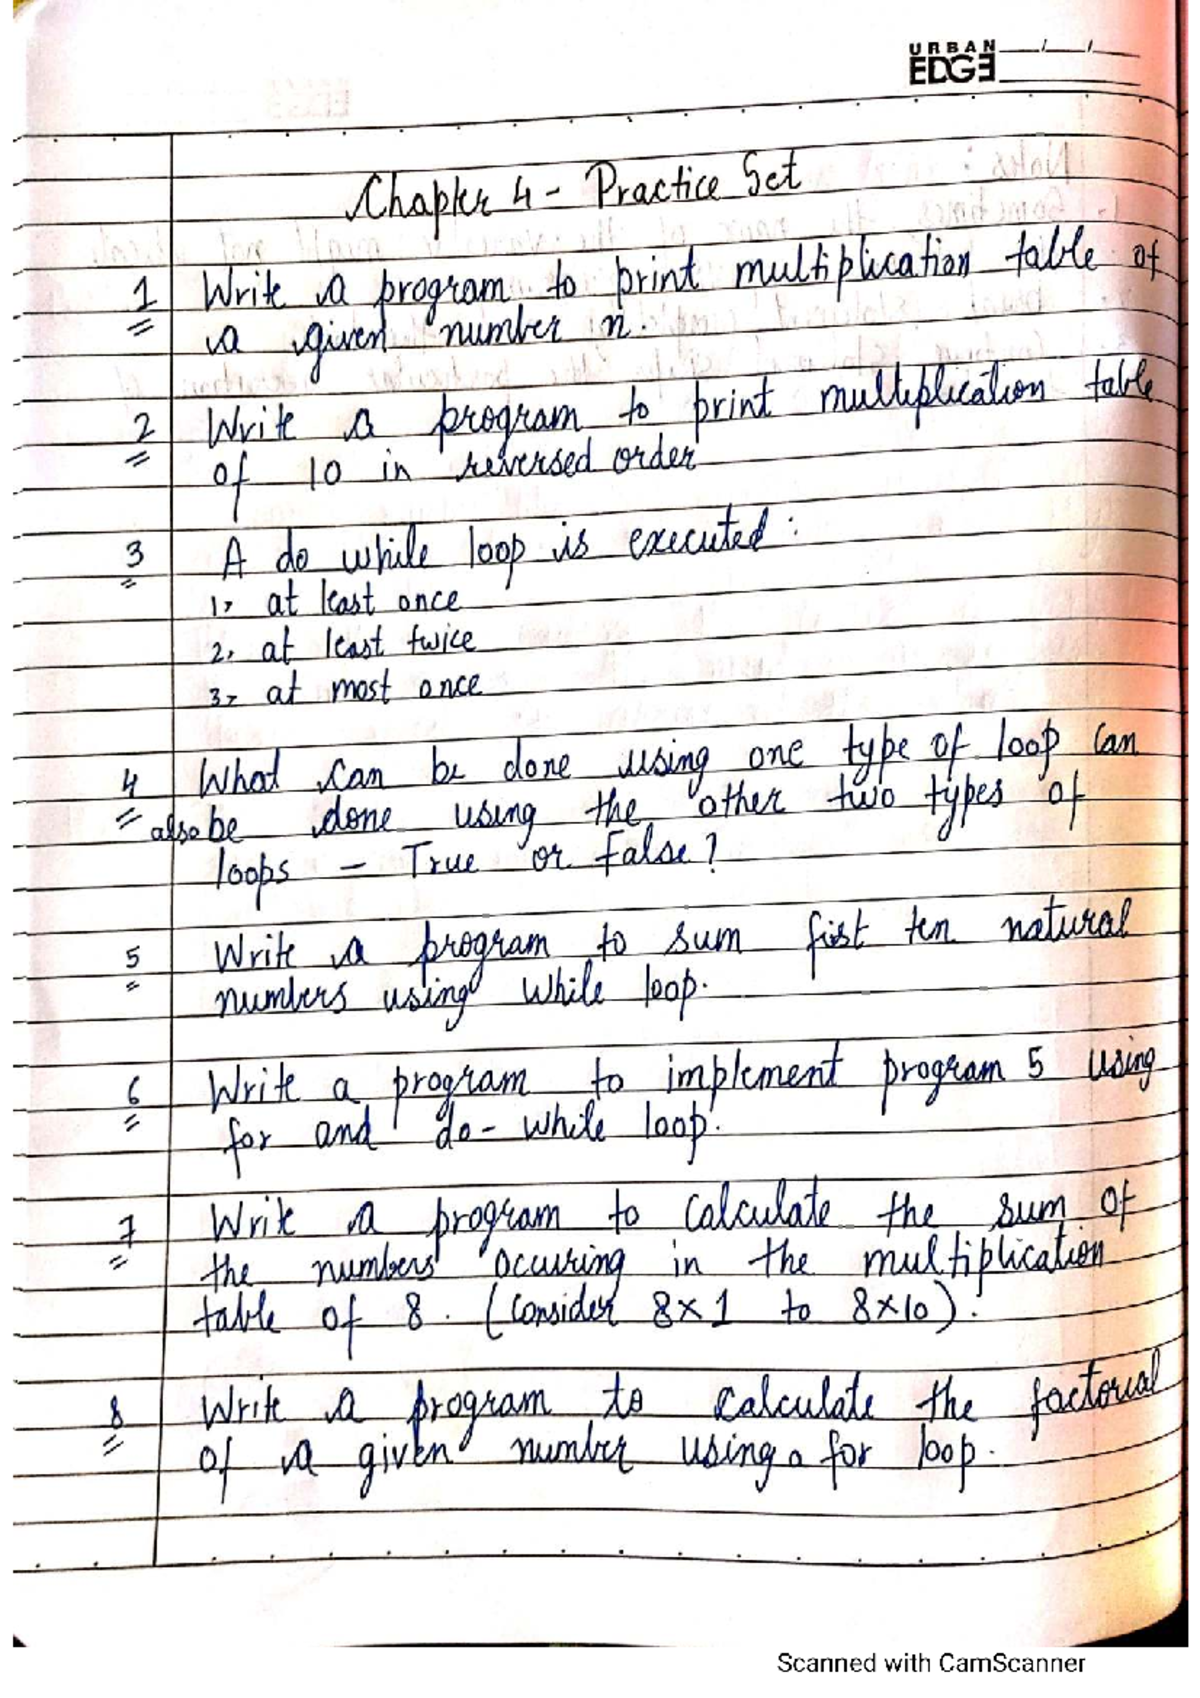 URBAN
EDGE
Chapter 4 - Practice Set
1 Write a program to print multiplication table of
a given number n.
2 Write a program to print multiplication table
of 10 in reversed order
3 A do while loop is executed :
1, at least once
2, at least twice
3, at most once
4 What can be done using one type of loop can
also be done using the other two types of
loops - True or False ?
5 Write a program to sum first ten natural
numbers using while loop.
6 Write a program to implement program 5 using
for and do-while loop.
7 Write a program to calculate the sum of
the numbers occuring in the multiplication
table of 8. (Consider 8×1 to 8×10).
8 Write a program to calculate the factorial
of a given number using a for loop.
Scanned with CamScanner